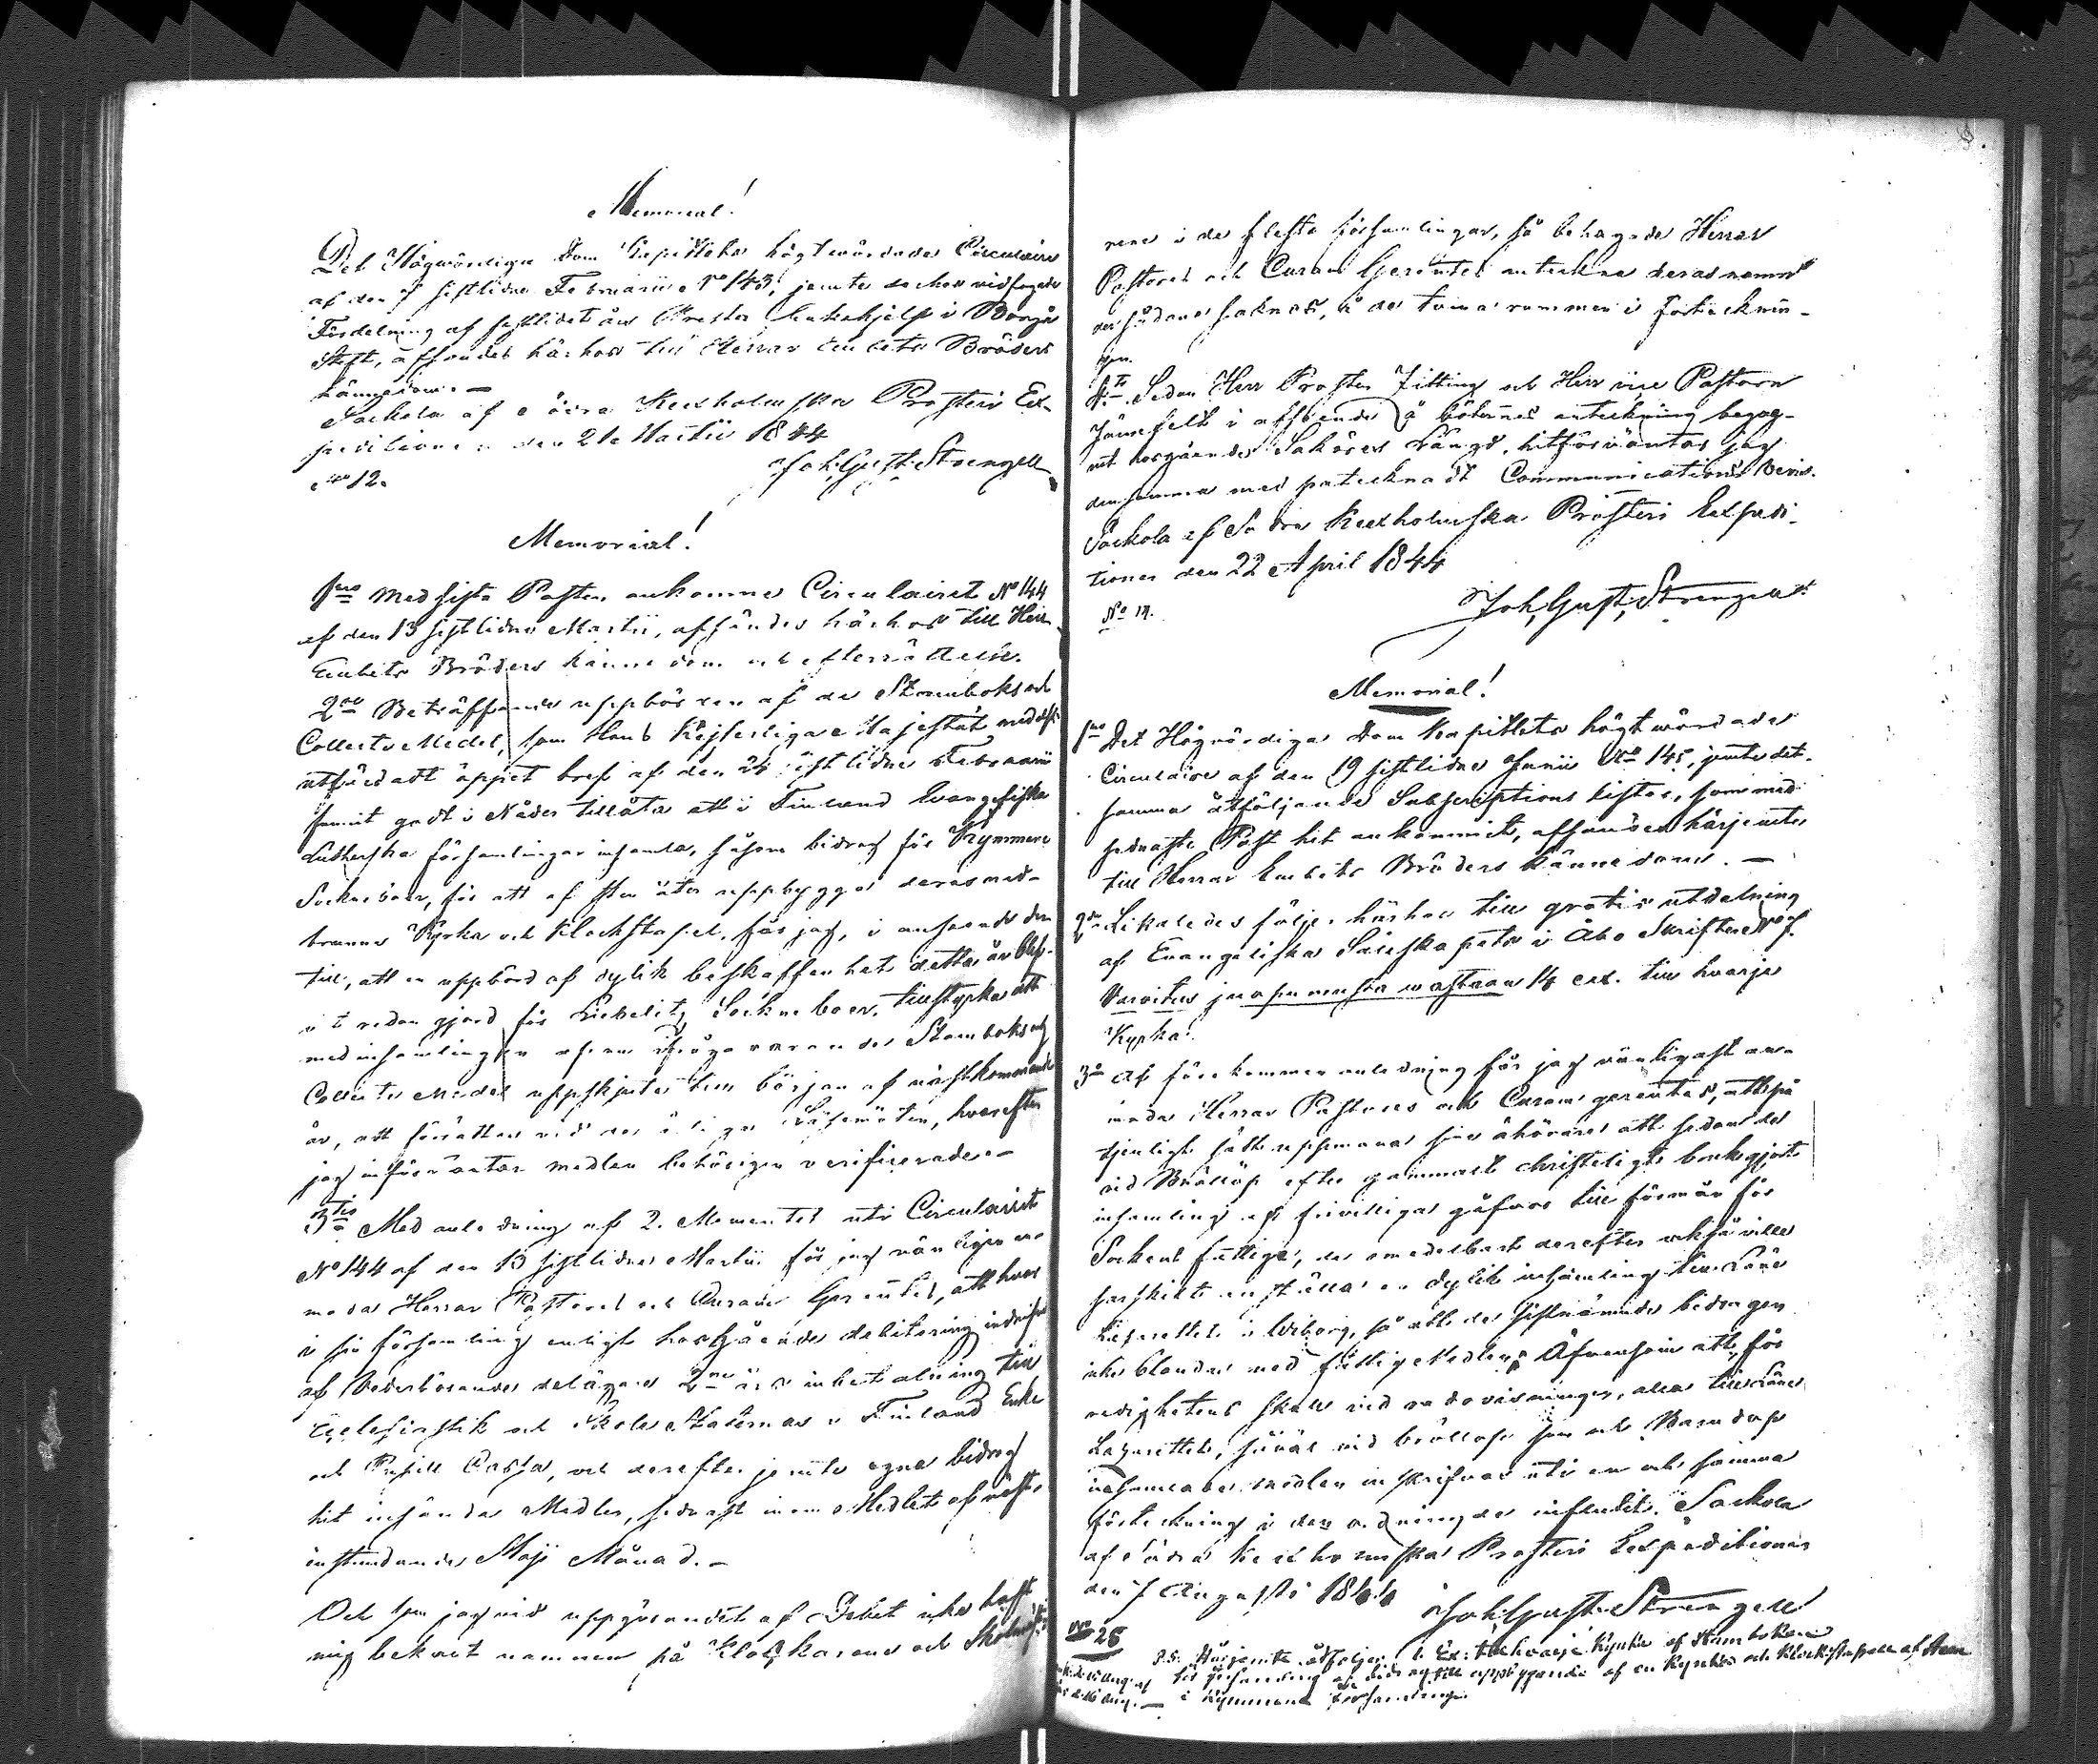 Memorial!
Det Högwördiga Dom Capitlets högtwördade Circulaire
af den 7 sistlidne Februarii No 143, jemte dechos vidfogade
Fördelning af sistlidet års Prester Enkehjelp i Borgå
Stift, afsändes härhos till Herrar Embets Bröders
kännedom. —
Sackola af Södra Kexholmska Prosteri Ex-
peditionen den 21 Martii 1844
Joh: Gust: Strengell
No 12.
Memorial!
1mo Med sista Posten ankomne Circulairet No 144
af den 13 sistlidne Martii, afsändes härhos till Herr
Embets Bröders kännedom och efterrättelse.
2do Beträffande uppbörden af de Stambok och
Collect Medel, som Hans Kejserliga Majestät medelst
utfärdadt öppet bref af den 24 sistlidne Februarii
funnit godt i Nåder tillåta att i Finland Evangeliska
Lutherska församlingar insamla, såsom bidrag för Kymmene
Sockneboer, för att af sten åter uppbygga deras ned-
brunne Kyrka och Klockstapel, får jag, i anseende der
till, att en uppbörd af dylik beskaffenhet detta år blif-
vit redan gjord för Liebelitz Sockneboer, tillstyrka att
med insamlingen af em ifrågavarande Stamboks och
Collect Medel uppskjutes till början af nästkommande
år, att förrättas vid de årliga Läsemöten, hvarefter
jag införväntar medlen behörigen verificerade. —
3tio Med anledning af 2. Momentet uti Circulairet
No 144 af den 13 sistlidne Martii får jag vänligen an-
moda Herrar Pastores och Curam Gerentes, att hvar
i sin församling enligt hosgående debitering indrifva
af Vederbörande delägare 2ne års inbetalning till
Ecclesiastik och Skole Staternas i Finland Enke
och Pupill Cassa, och derefter jemte egna bidrag
hit insända Medlen, sednast inom Medlet af näst-
instundande Maji Månad. —
Och som jag vid uppgörandet af Debet icke haft
mig bekant namnen på Klockarene och Skolmäst-
rene i de flesta församlingar, så behagade Herrar
Pastores och Curam Gerentes anteckna deras namn
der sådane saknas, å de tomma rummen i förtecknin-
gen.
4to Sedan Herr Prosten Zitting och Herr vice Pastorn
Jänefelt i afseende å böternes anteckning begag-
nat hosgående Saköres Längd, hitförväntas jag
densamma med påtecknadt Communications Bevis.
Sackola af Södra Kexholmska Prosteri Expedi-
tionen den 22 April 1844
Joh: Gust: Strengell
No 19.
Memorial!
1mo Det Högvördiga Dom Kapitlets högtwördade
Circulaire af den 19 sistlidne Junii No 145, jemte det-
samma åtföljande Subscriptions listor, som med
sednaste Post hit ankommit, afsändes härjemte
till Herrar Embets Bröders kännedom. —
2do Likaledes följer härhos till gratis utdelning
af Evangeliska Sällskapets i Åbo Skrifter No 7.
Varoitus juopumusta wastaan 14 ex. till hvarje
Kyrka.
3o Af förekommen anledning får jag vänligast an-
moda Herrar Pastores och Curam gerentes, att på
tjenligt sätt uppmana sine åhörare att sedan de
vid Bröllop efter gammalt christeligt bruk gjort
insamling af frivilliga gåfvor till förmån för
Sockens fattige, de omedelbart derefter också ville
särskildt anställa en dylik insamling till Läns
Lazarettet i Wiborg, så att de sistnämnde bidragen
icke blandas med fattig Medlen; Äfvensom att, för
redighetens skull vid redovisningen, alla till Läns
Lazarettet, såväl vid bröllop som ock Barndop
insamlade medlen inskrifvas uti en och samma
förteckning i den ordning de influtit. Sackola
af Södra Kexholmska Prosteri Expeditionen
den 7 Augusti 1844
Joh: Gust: Strengell
No 28
P.S. Härjemte åtföljer 1 Ex: till hvarje Kyrka af Stamboken
för insamling af bidrag till uppbyggande af en Kyrka och Klockstapell af Sten
i Kymmene Församling.